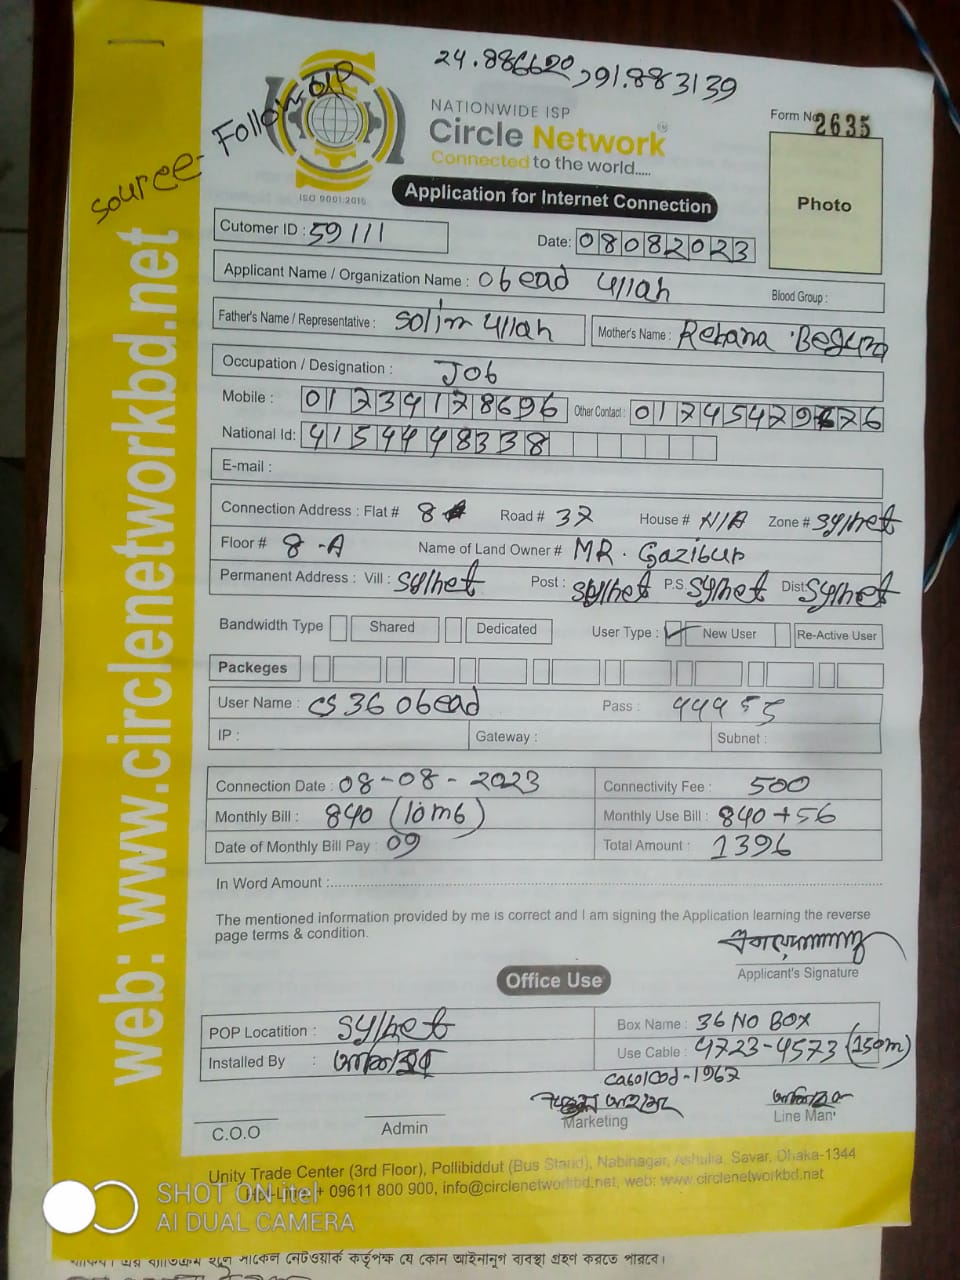 24.886620,91.883139
source- Follow-UP
NATIONWIDE ISP
Circle Network
Connected to the world.....
ISO 9001:2015
Form No 2635
Application for Internet Connection
Photo
Cutomer ID : 59111
Date: 08082023
Applicant Name / Organization Name : Obead Ullah
Blood Group :
Father's Name / Representative : Solim Ullah
Mother's Name : Rehana Begum
Occupation / Designation : Job
Mobile : 01734178696 Other Contact :
National Id: 4154448338
E-mail :
Connection Address : Flat # 8 Road # 37 House # N/A Zone # Sylhet
Floor # 8-A Name of Land Owner # MR. Gazibur
Permanent Address : Vill : Sylhet Post : Sylhet P.S Sylhet Dist: Sylhet
Bandwidth Type Shared Dedicated User Type : ✓ New User Re-Active User
Packeges
User Name : CS36 Obead Pass : 44455
IP : Gateway : Subnet :
Connection Date : 08-08-2023 Connectivity Fee : 500
Monthly Bill : 840 (10mb) Monthly Use Bill : 840+56
Date of Monthly Bill Pay : 09 Total Amount : 1396
In Word Amount :
The mentioned information provided by me is correct and I am signing the Application learning the reverse
page terms & condition.
Applicant's Signature
Office Use
POP Locatition : Sylhet Box Name : 36 NO BOX
Installed By : Use Cable : 4723-4573 (150m)
C.O.O Admin Marketing Line Man
Unity Trade Center (3rd Floor), Pollibiddut (Bus Stand), Nabinagar, Ashulia, Savar, Dhaka-1344
+ 09611 800 900, info@circlenetworkbd.net, web: www.circlenetworkbd.net
web: www.circlenetworkbd.net
SHOT ON itel
AI DUAL CAMERA
ব্যতিক্রম হলে সার্কেল নেটওয়ার্ক কর্তৃপক্ষ যে কোন আইনানুগ ব্যবস্থা গ্রহণ করতে পারবে।